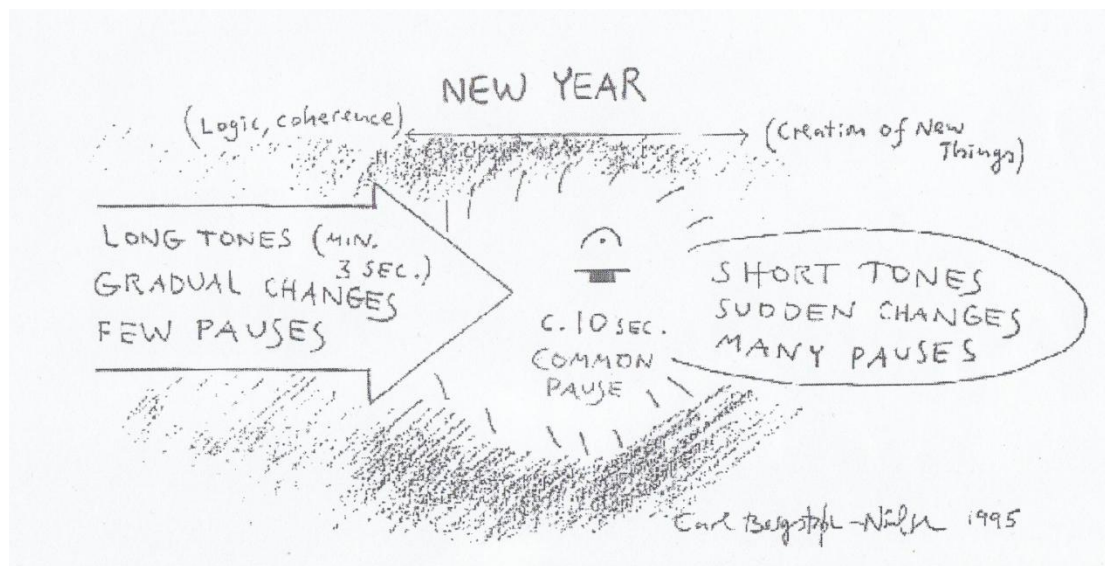 NEW YEAR
(Logic, coherence)
(Creation of New
Things)
LONG TONES (MIN.
3 SEC.)
GRADUAL CHANGES
FEW PAUSES
C. 10 SEC.
COMMON
PAUSE
SHORT TONES
SUDDEN CHANGES
MANY PAUSES
Carl 1995